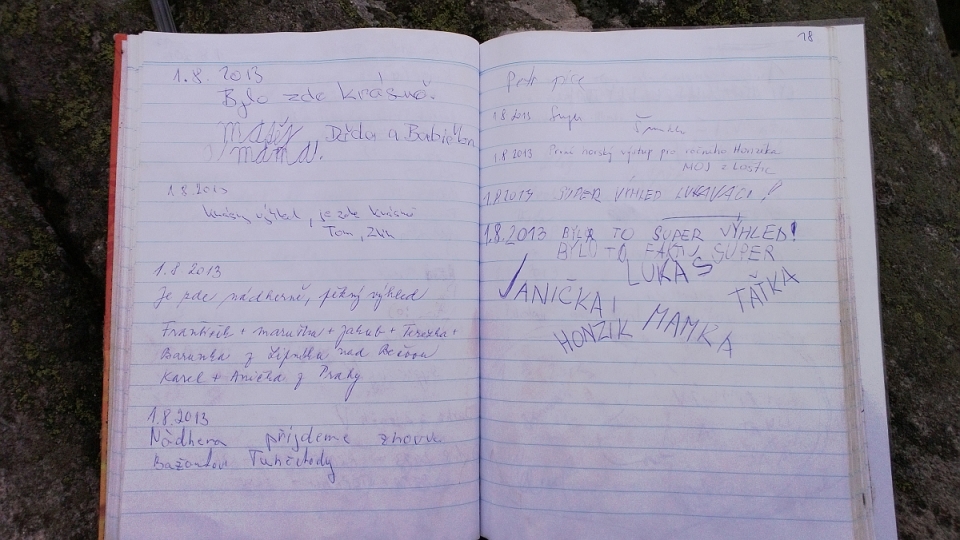 1.8. 2013
Bylo zde krásně.
Matěj
máma. Děda a Barbička
1.8 2013
krásný výhled, je zde krásně
Tom,
1.8.2013
Je zde nádherně, pěkný výhled
František + Maruška + Jakub + Terezka +
Barunka z Lipníka nad Bečvou
Karel + Anička z Prahy
1.8.2013
Nádhera přijdeme znovu
Tuněchody
18
Petr
1.8 2013 Super
1.8 2013 První horský výstup pro ročního Honzíka
z Loštic
1.8.2013 SUPER VÝHLED LUKAVÁCI!
1.8.2013 BYLO TO SUPER VÝHLED!
BYLO TO FAKT SUPER
LUKÁŠ
JANIČKA! TAŤKA
HONZÍK MAMKA